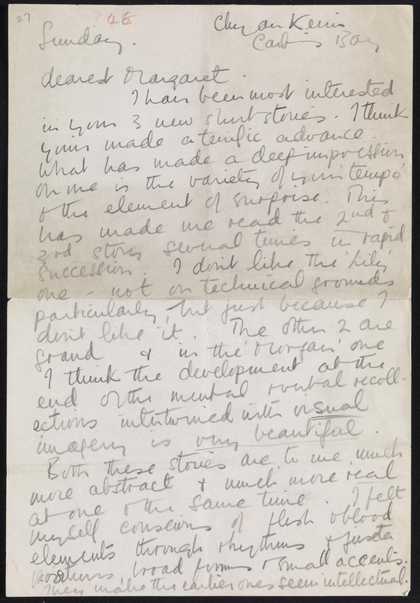 27
Sunday.
Chy an Kerris
Carbis Bay
dearest Margaret.
I have been most interested
in your 3 new short stories. I think
you've made a terrific advance.
What has made a deep impression
on me is the variety of your 'tempo'
& the element of surprise. This
has made me read the 2nd &
3rd story several times in rapid
succession. I don't like the Lily
one - not on technical grounds
particularly, but just because I
don't like it. The other 2 are
grand & in the 'Morgan' one
I think the development at the
end of the mental verbal recoll-
ections intertwined with visual
imagery is very beautiful.
Both these stories are to me much
more abstract & much more real
at one & the same time. I felt
myself conscious of flesh & blood
elements through rhythms &
broad forms & small accents.
They make the earlier ones seem intellectual.